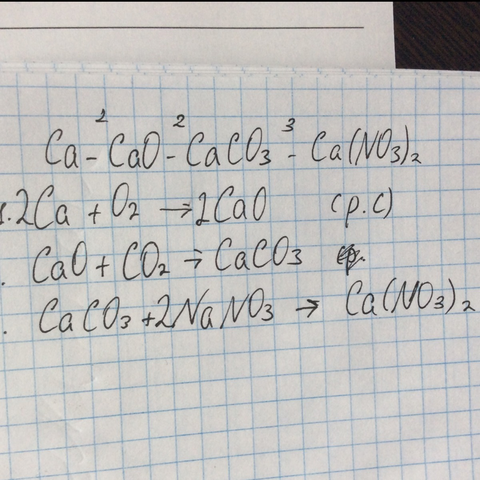 1 2 3
Ca - CaO - CaCO₃ - Ca(NO₃)₂
1. 2Ca + O₂ → 2CaO (р.с)
. CaO + CO₂ → CaCO₃
. CaCO₃ + 2NaNO₃ → Ca(NO₃)₂